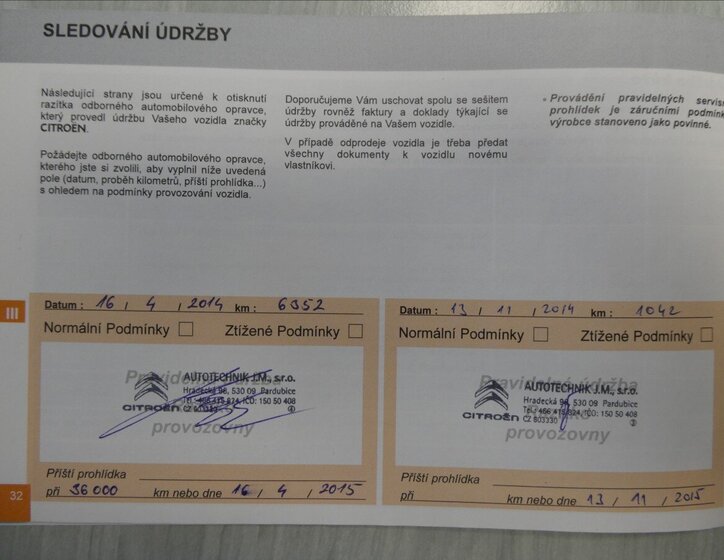 SLEDOVÁNÍ ÚDRŽBY
Následující strany jsou určené k otisknutí
razítka odborného automobilového opravce,
který provedl údržbu Vašeho vozidla značky
CITROËN.
Požádejte odborného automobilového opravce,
kterého jste si zvolili, aby vyplnil níže uvedená
pole (datum, proběh kilometrů, příští prohlídka...)
s ohledem na podmínky provozování vozidla.
Doporučujeme Vám uschovat spolu se sešitem
údržby rovněž faktury a doklady týkající se
údržby prováděné na Vašem vozidle.
V případě odprodeje vozidla je třeba předat
všechny dokumenty k vozidlu novému
vlastníkovi.
• Provádění pravidelných servisn
prohlídek je záručními podmínk
výrobce stanoveno jako povinné.
III
Datum : 16 / 4 / 2014 km : 6352
Normální Podmínky Ztížené Podmínky
Pravidelná údržba
AUTOTECHNIK J.M., s.r.o.
Hradecká 98, 530 09 Pardubice
IČO: 150 50 408
CITROËN
provozovny
Příští prohlídka
při 36 000 km nebo dne 16 / 4 / 2015
Datum : 13 / 11 / 2014 km : 1042
Normální Podmínky Ztížené Podmínky
Pravidelná údržba
AUTOTECHNIK J.M., s.r.o.
Hradecká 98, 530 09 Pardubice
IČO: 150 50 408
CITROËN CZ 803330
provozovny
Příští prohlídka
při km nebo dne 13 / 11 / 2015
32